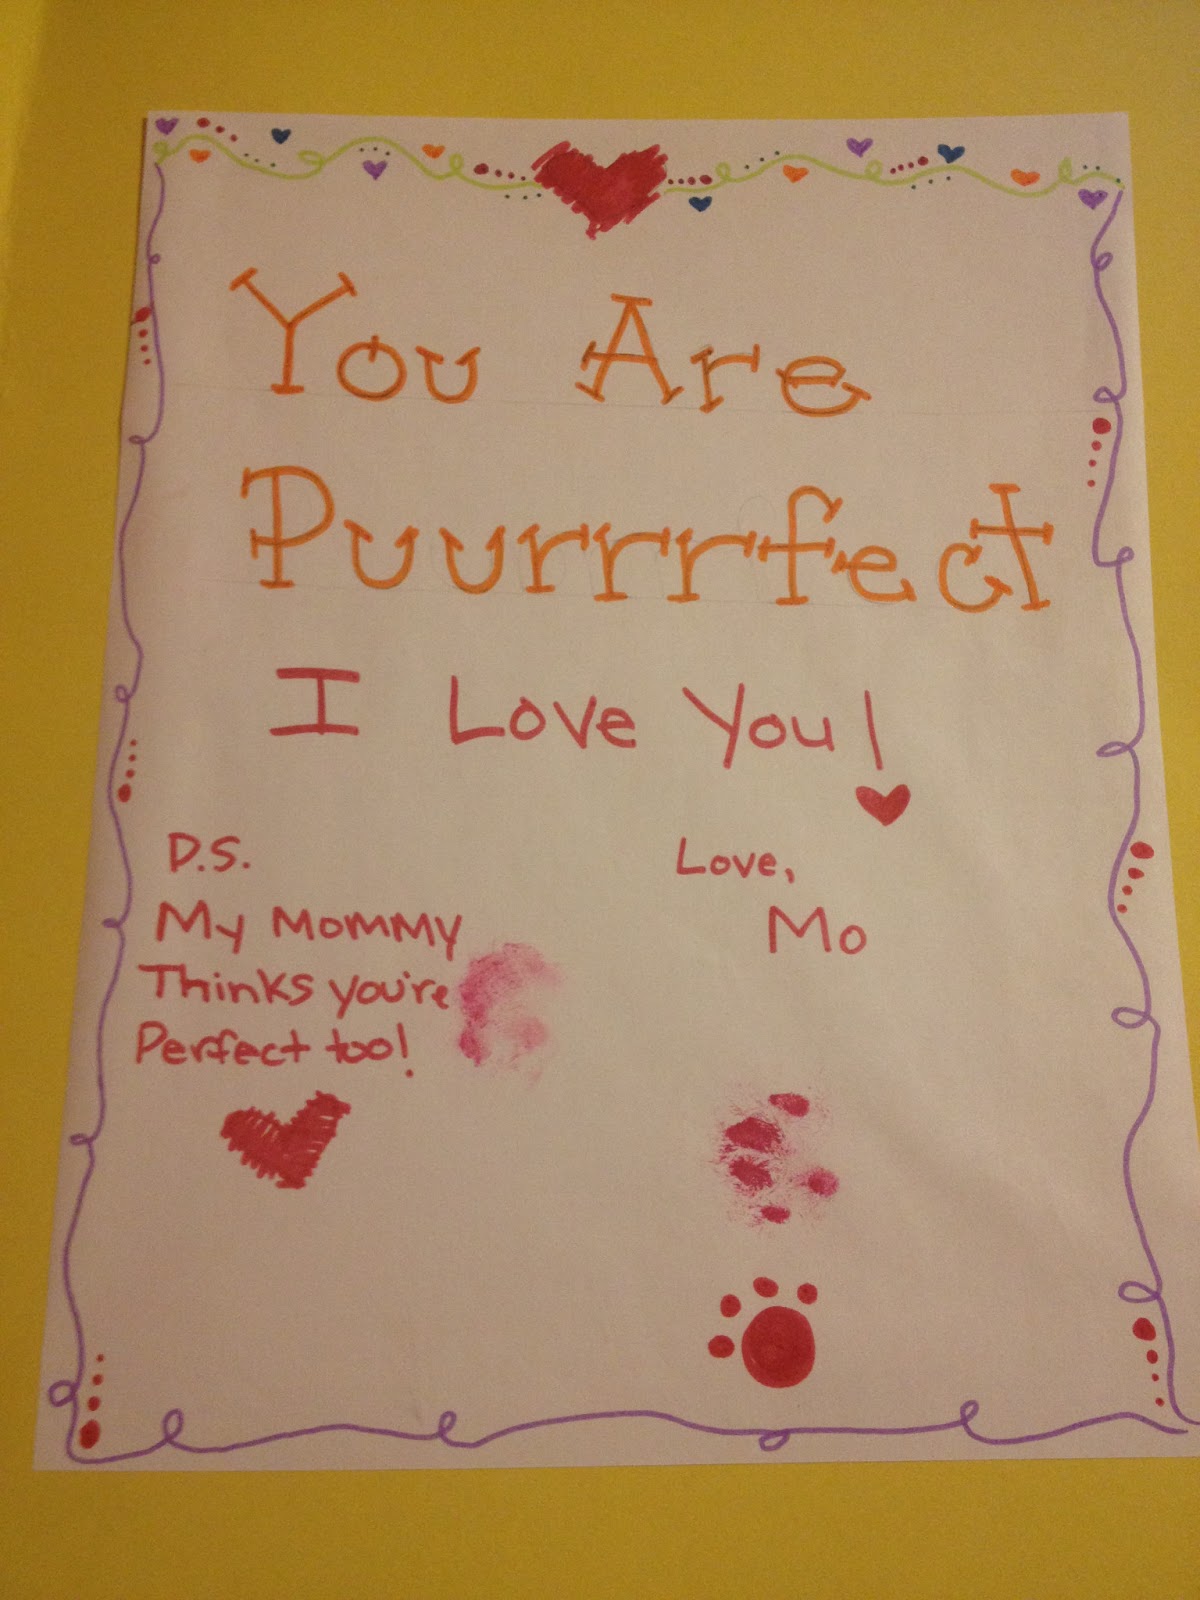 You Are
Puurrrfect
I Love You!
D.S.
My Mommy
Thinks you're
Perfect too!
Love,
Mo